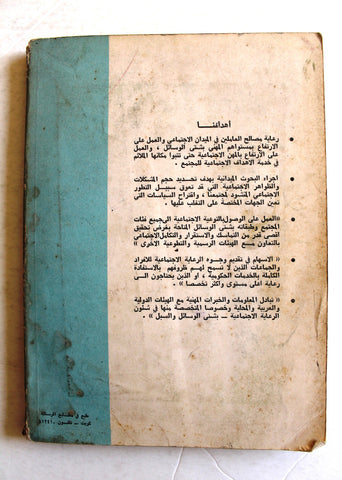 أهدافنا
رعاية مصالح العاملين في الميدان الاجتماعي والعمل على
الارتفاع بمستواهم المهني بشتى الوسائل ، والعمل
على الارتفاع بالمهن الاجتماعية حتى تتبوا مكانها الملائم
في خدمة الاهداف الاجتماعية للمجتمع .
اجراء البحوث الميدانية بهدف تحديد حجم المشكلات
والظواهر الاجتماعية التي قد تعوق سبيل التطور
الاجتماعي المنشود لمجتمعنا ، واقتراح السياسات التي
تعين الجهات المختصة على التغلب عليها .
«العمل على الوصول بالتوعية الاجتماعية الى جميع فئات
المجتمع وطبقاته بشتى الوسائل المتاحة بغرض تحقيق
اقصى قدر من التماسك والاستقرار والتكامل الاجتماعي
بالتعاون مع الهيئات الرسمية والتطوعية الاخرى »
« الاسهام في تقديم وجوه الرعاية الاجتماعية للافراد
والجماعات الذين لا تسمح لهم ظروفهم بالاستفادة
الكاملة بالخدمات الحكومية ، او الذين يحتاجون الى
رعاية اعلى مستوى واكثر تخصصا » .
« تبادل المعلومات والخبرات المهنية مع الهيئات الدولية
والعربية والمحلية وخصوصا المتخصصة منها في شئون
الرعاية الاجتماعية ـ بشتى الوسائل والسبل » .
طبع في مطابع
كويت ـ تلفون